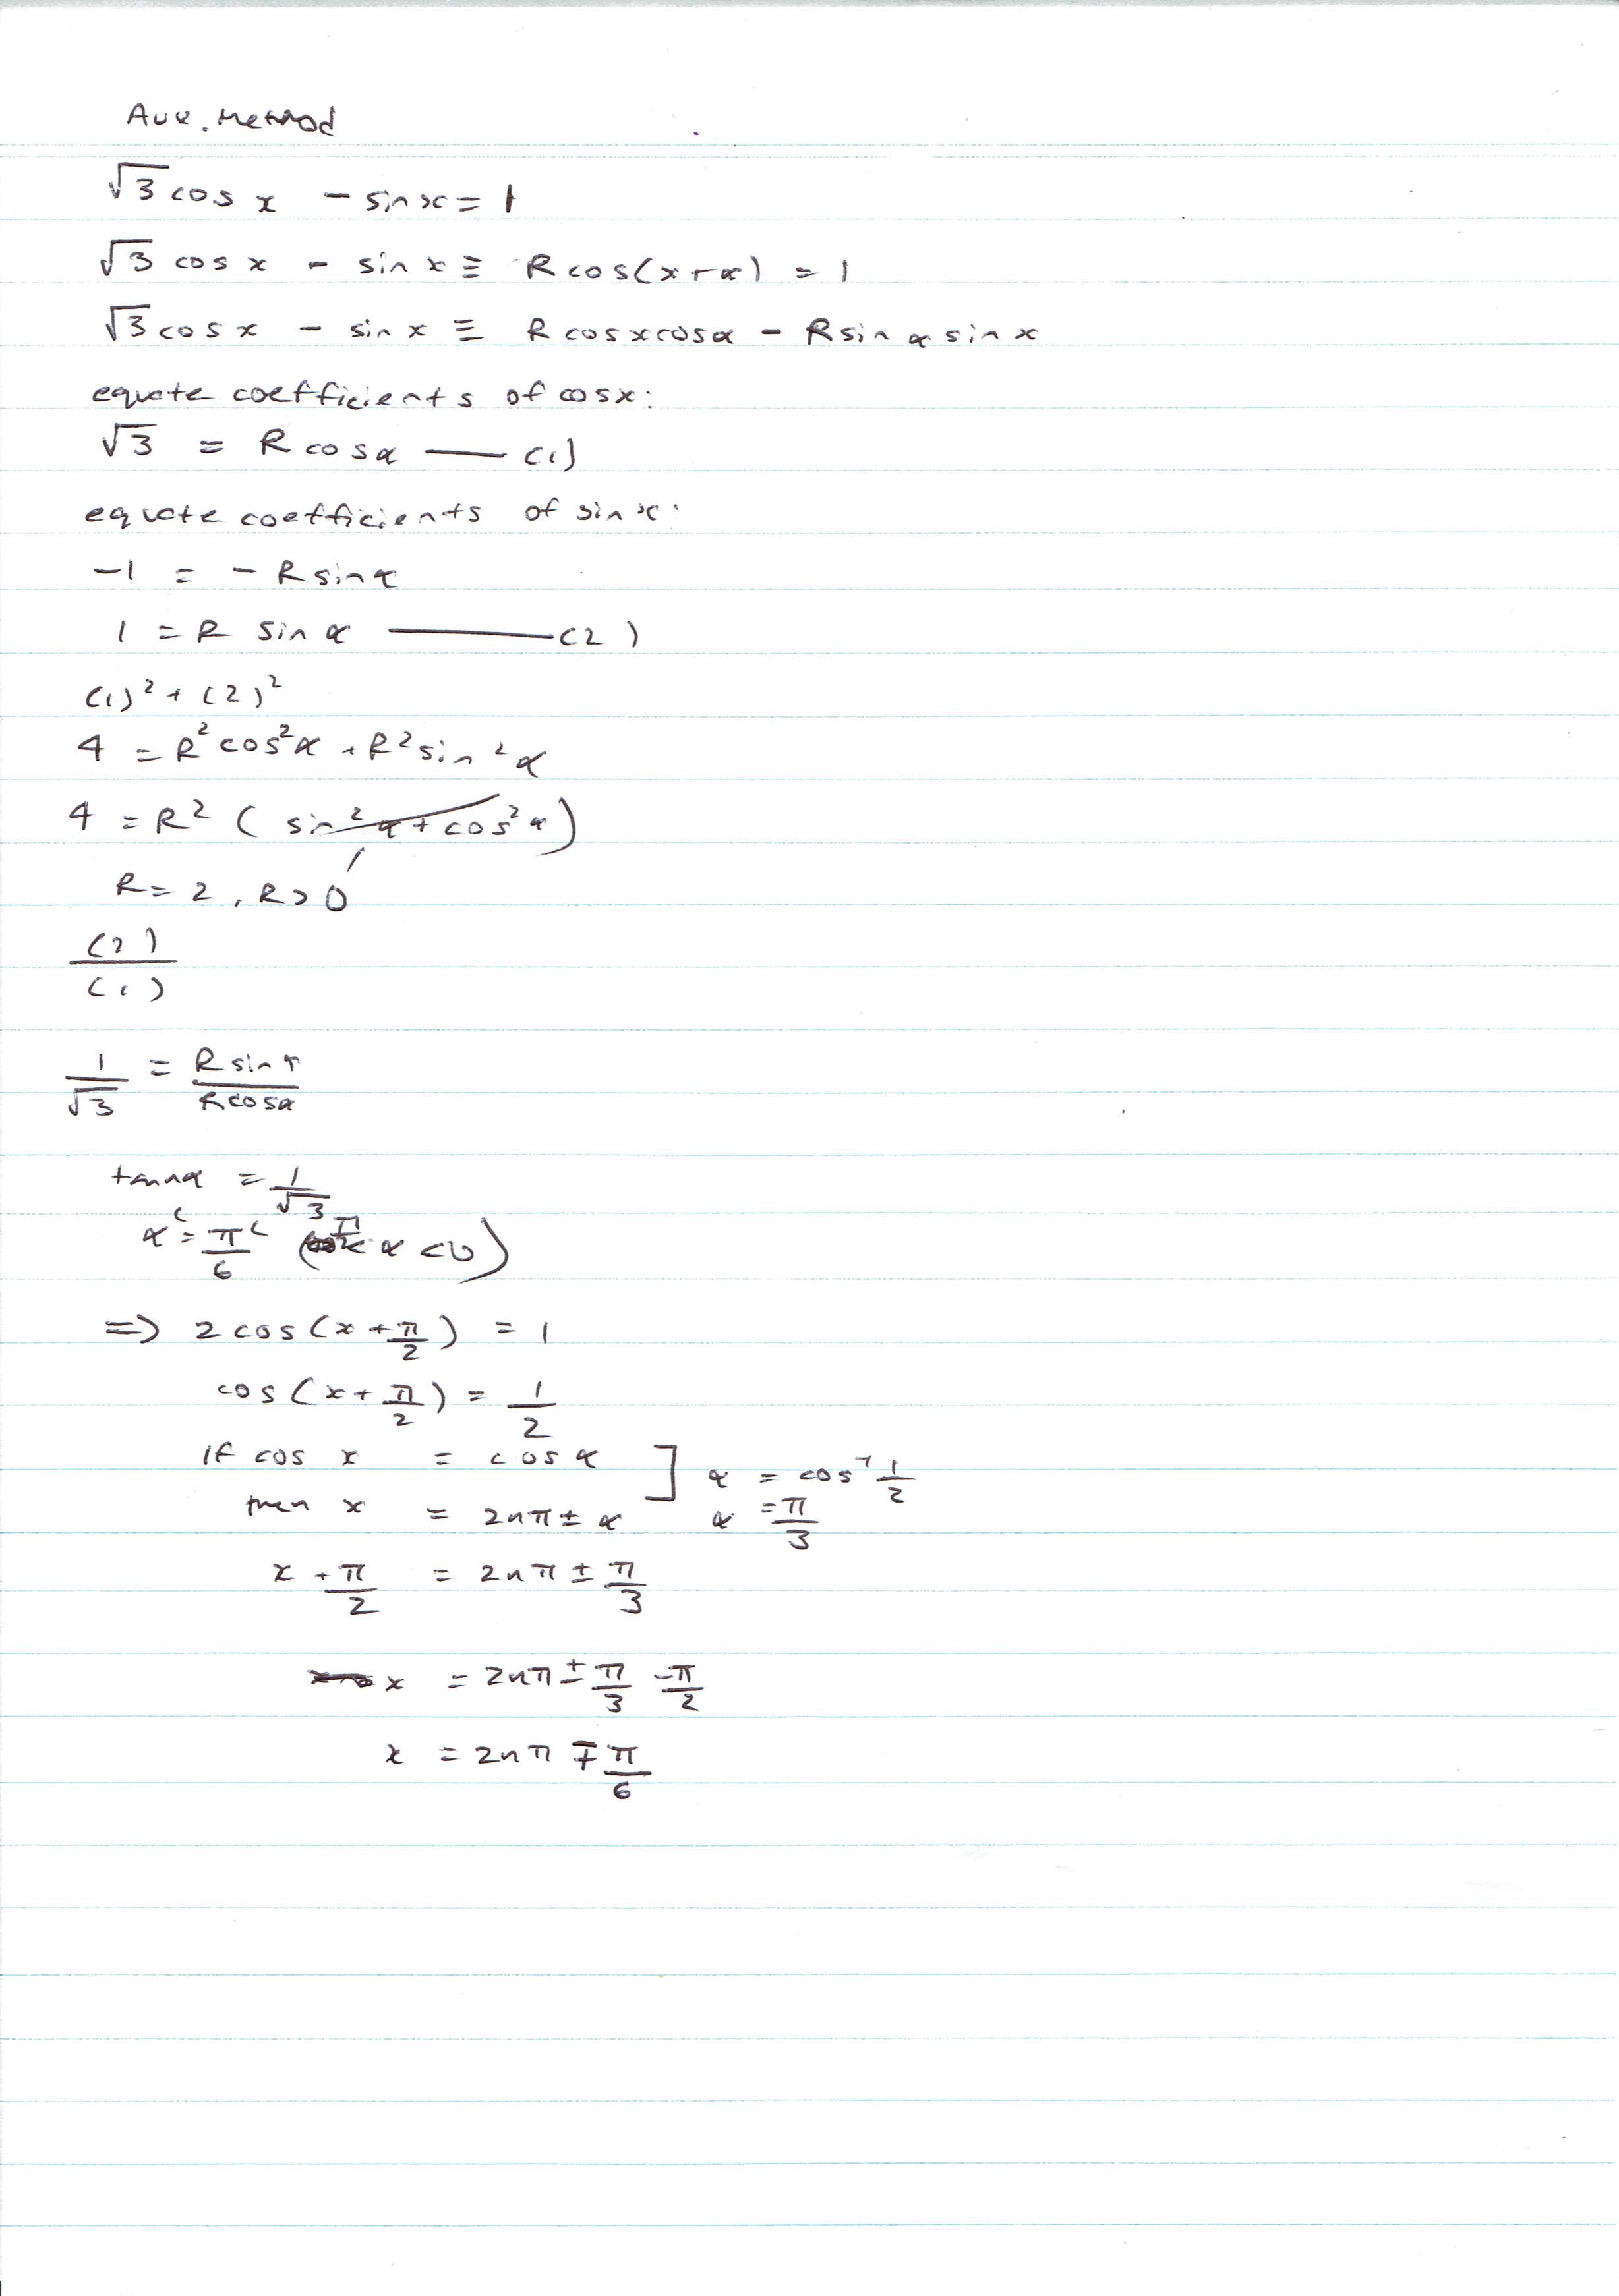 Aux. Method
√3 cos x - sin x = 1
√3 cos x - sin x ≡ R cos(x+α) = 1
√3 cos x - sin x ≡ R cos x cos α - R sin α sin x
equate coefficients of cos x:
√3 = R cos α —— (1)
equate coefficients of sin x:
-1 = - R sin α
1 = R sin α ——— (2)
(1)² + (2)²
4 = R² cos² α + R² sin² α
4 = R² (sin² α + cos² α)
1
R = 2, R > 0
(2)/(1)
1/√3 = R sin α / R cos α
tan α = 1/√3
α^c = π/6^c α < 0)
=> 2 cos (x + π/2) = 1
cos (x + π/2) = 1/2
If cos x = cos α ] α = cos⁻¹ 1/2
then x = 2nπ ± α α = π/3
x + π/2 = 2nπ ± π/3
x = 2nπ ± π/3 - π/2
x = 2nπ ∓ π/6